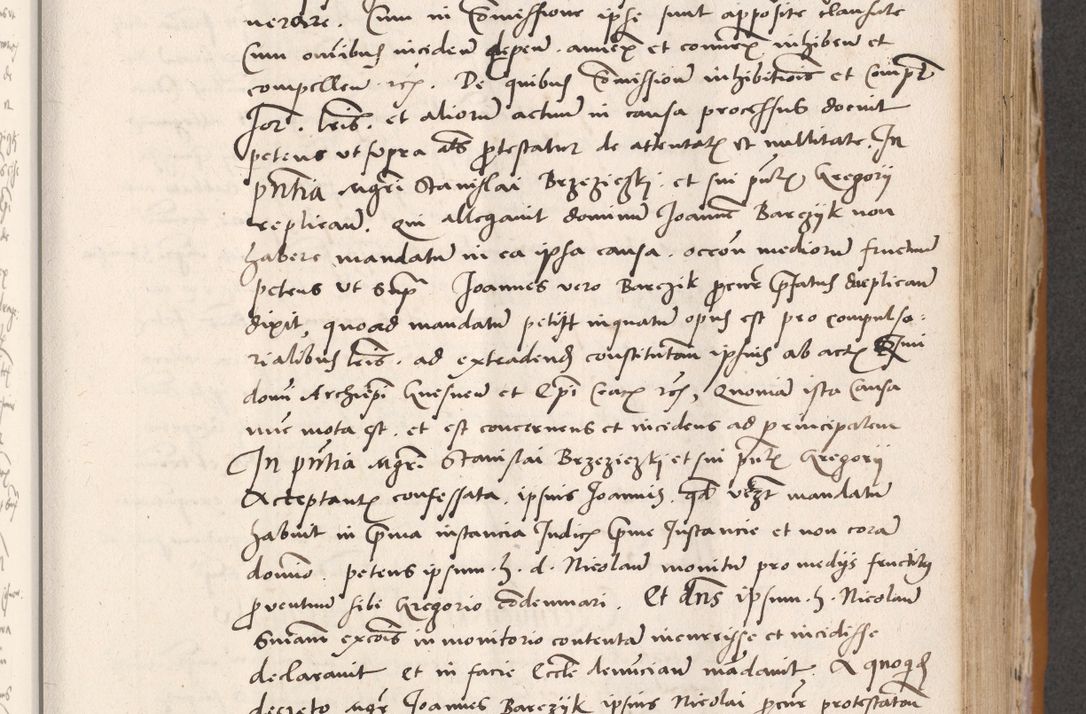 verare. Cum in Comissione ipse sunt apposite clausule
Cum omibus inciden depen. annex et connex inhiben et
compellen rcz. De quibus Comissionum inhibitionis et Compul
for. Lris. et aliorum actum in causa processus docuit
petens ut supra als protestatur de attentatis et nullitate. In
pntia Mgri Stanislai Brzezieczki. et sui pntis Gregorii
replican. Qui allegavit dominum Joannem Barczyk non
habere mandatum in ea ipsa causa. occon mediorum fructuum
petens ut Supra Joannes vero Barczik procur prefatus replican
dixit, quoad mandatum petiit inquantum opus est pro compulso-
rialibus Lris. ad extradend constitutum ipsius ab actis
domi Archiepi Gnesnen et Epi Crac rcz, Quoniam ista Causa
nunc mota est. et est concernens et incidens ad principalem
In pntia Mgri Stanislai Brzezieczki et sui pntis Gregorii
Acceptantis confessata. ipsius Joannis, quod mandatum
habuit in prima instancia Judicis prime Instancie et non coram
domino. petens ipsum. h. d. Nicolaum monitum pro mediis fructibus
proventum sibi Gregorio condemnari. Et dns ipsum. h. Nicolaum
Sniam excois in monitorio contentam incurrisse et incidisse
declaravit Et in facie Eccle denuncian mandavit. A quoquidem
decreto Mgr Joannes Barczyk ipsius Nicolai procur protestatur